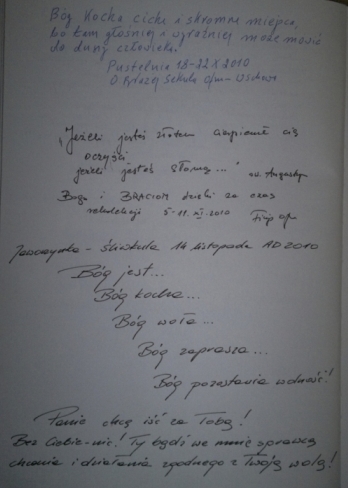 Bóg kocha ciche i skromne miejsca,
bo tam głośniej i wyraźniej może mówić
do duszy człowieka.
Pustelnia 18-22 X 2010
O. Sekula ofm - Wschowa
"Jeżeli jesteś złotem cierpienie cię
oczyści
jeżeli jesteś słomą..." św. Augustyn
Bogu i BRACIOM dzięki za czas
rekolekcji 5-11. XI. 2010 Filip ofm
14 listopada AD 2010
Bóg jest...
Bóg kocha...
Bóg woła...
Bóg zaprasza...
Bóg pozostawia wolność!
Panie chcę iść za Tobą!
Bez Ciebie - nic! Ty bądź we mnie sprawcą
chcenia i działania zgodnego z Twoją wolą!